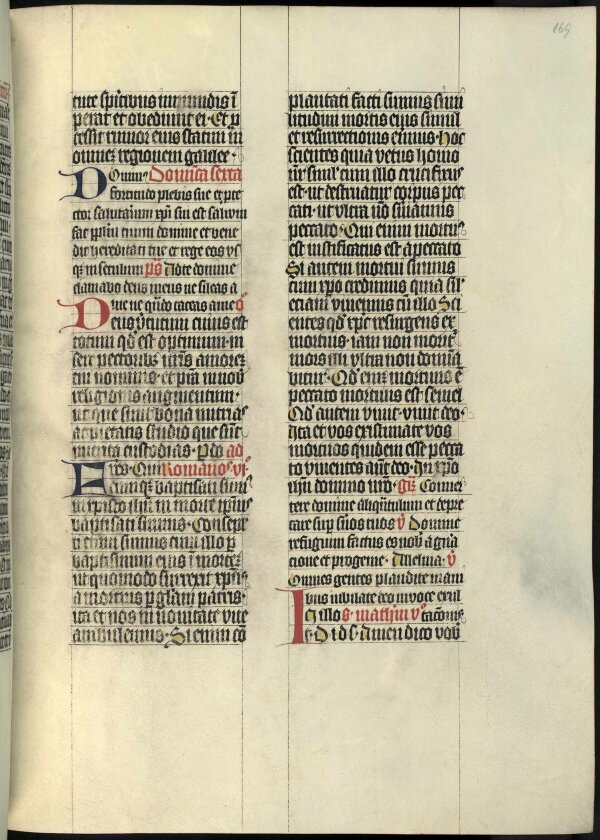 169
tute spiritibus immundis ī
perat et obediunt ei · Et p
cessit rumor eius statim in
omnem regionem galilee ·
Domin9 Domica sexta
fortitudo plebis sue et pte
ctor salutarium xpi sui est saluum
fac pplm tuum domine et bene
dic hereditati tue et rege eos vs
q̄ in seculum ps Ad te domine
clamabo deus meus ne sileas a
me ne quādo taceas a me
Deus v̄tutum cuius est
totum qd est optimum in
sere pectoribus n̄ris amorem
tui nominis · et p̄sta in nob
religionis augmentum ·
ut que sunt bona nutrias
ac pietatis studio que sūt
nutrita custodias · P do ad
Fres · Qui Romanos vi
cumq̄ baptisati sum9
in xp̄o ihu in morte ip̄ius
baptisati sumus · Consepl
ti enim sumus cum illo p
baptismum eius ī mortē
ut quomodo surrexit xp̄us
a mortuis p glam patris ·
ita et nos in nouitate vite
ambulemus · Si enim cō
plantati facti sumus simi
litudini mortis eius simul
et resurrectionis erimus · Hoc
scientes quia vetus homo
nr̄ simul cum illo crucifixus
est · ut destruatur corpus pec
cati · ut vltra nō s̄uiamus
peccato · Qui enim mortu9
est iustificatus est a peccato
Si autem mortui sumus
cum xp̄o credimus quia sil
eciam viuemus cū illo Sci
entes qd xp̄c resurgens ex
mortuis · iam non morit̄
mors illi vltra non domīa
bitur · Qd enim mortuus ē
peccato mortuus est semel
Qd autem viuit · viuit deo ·
Ita et vos existimate vos
mortuos quidem esse pecca
to viuentes aut̄ deo · In xp̄o
ihu domino nr̄o · gr̄ Conuer
tere domine aliq̄ntulum et depre
care sup̄ s̄uos tuos v̄ Domine
refugium factus es nob a gn̄a
cione et progenie · Alleluia · v̄
Omnes gentes plaudite mani
bus iubilate deo in voce exul
In illo s · mathm v tacōnis
t · D · i · d · s · Amen dico vob